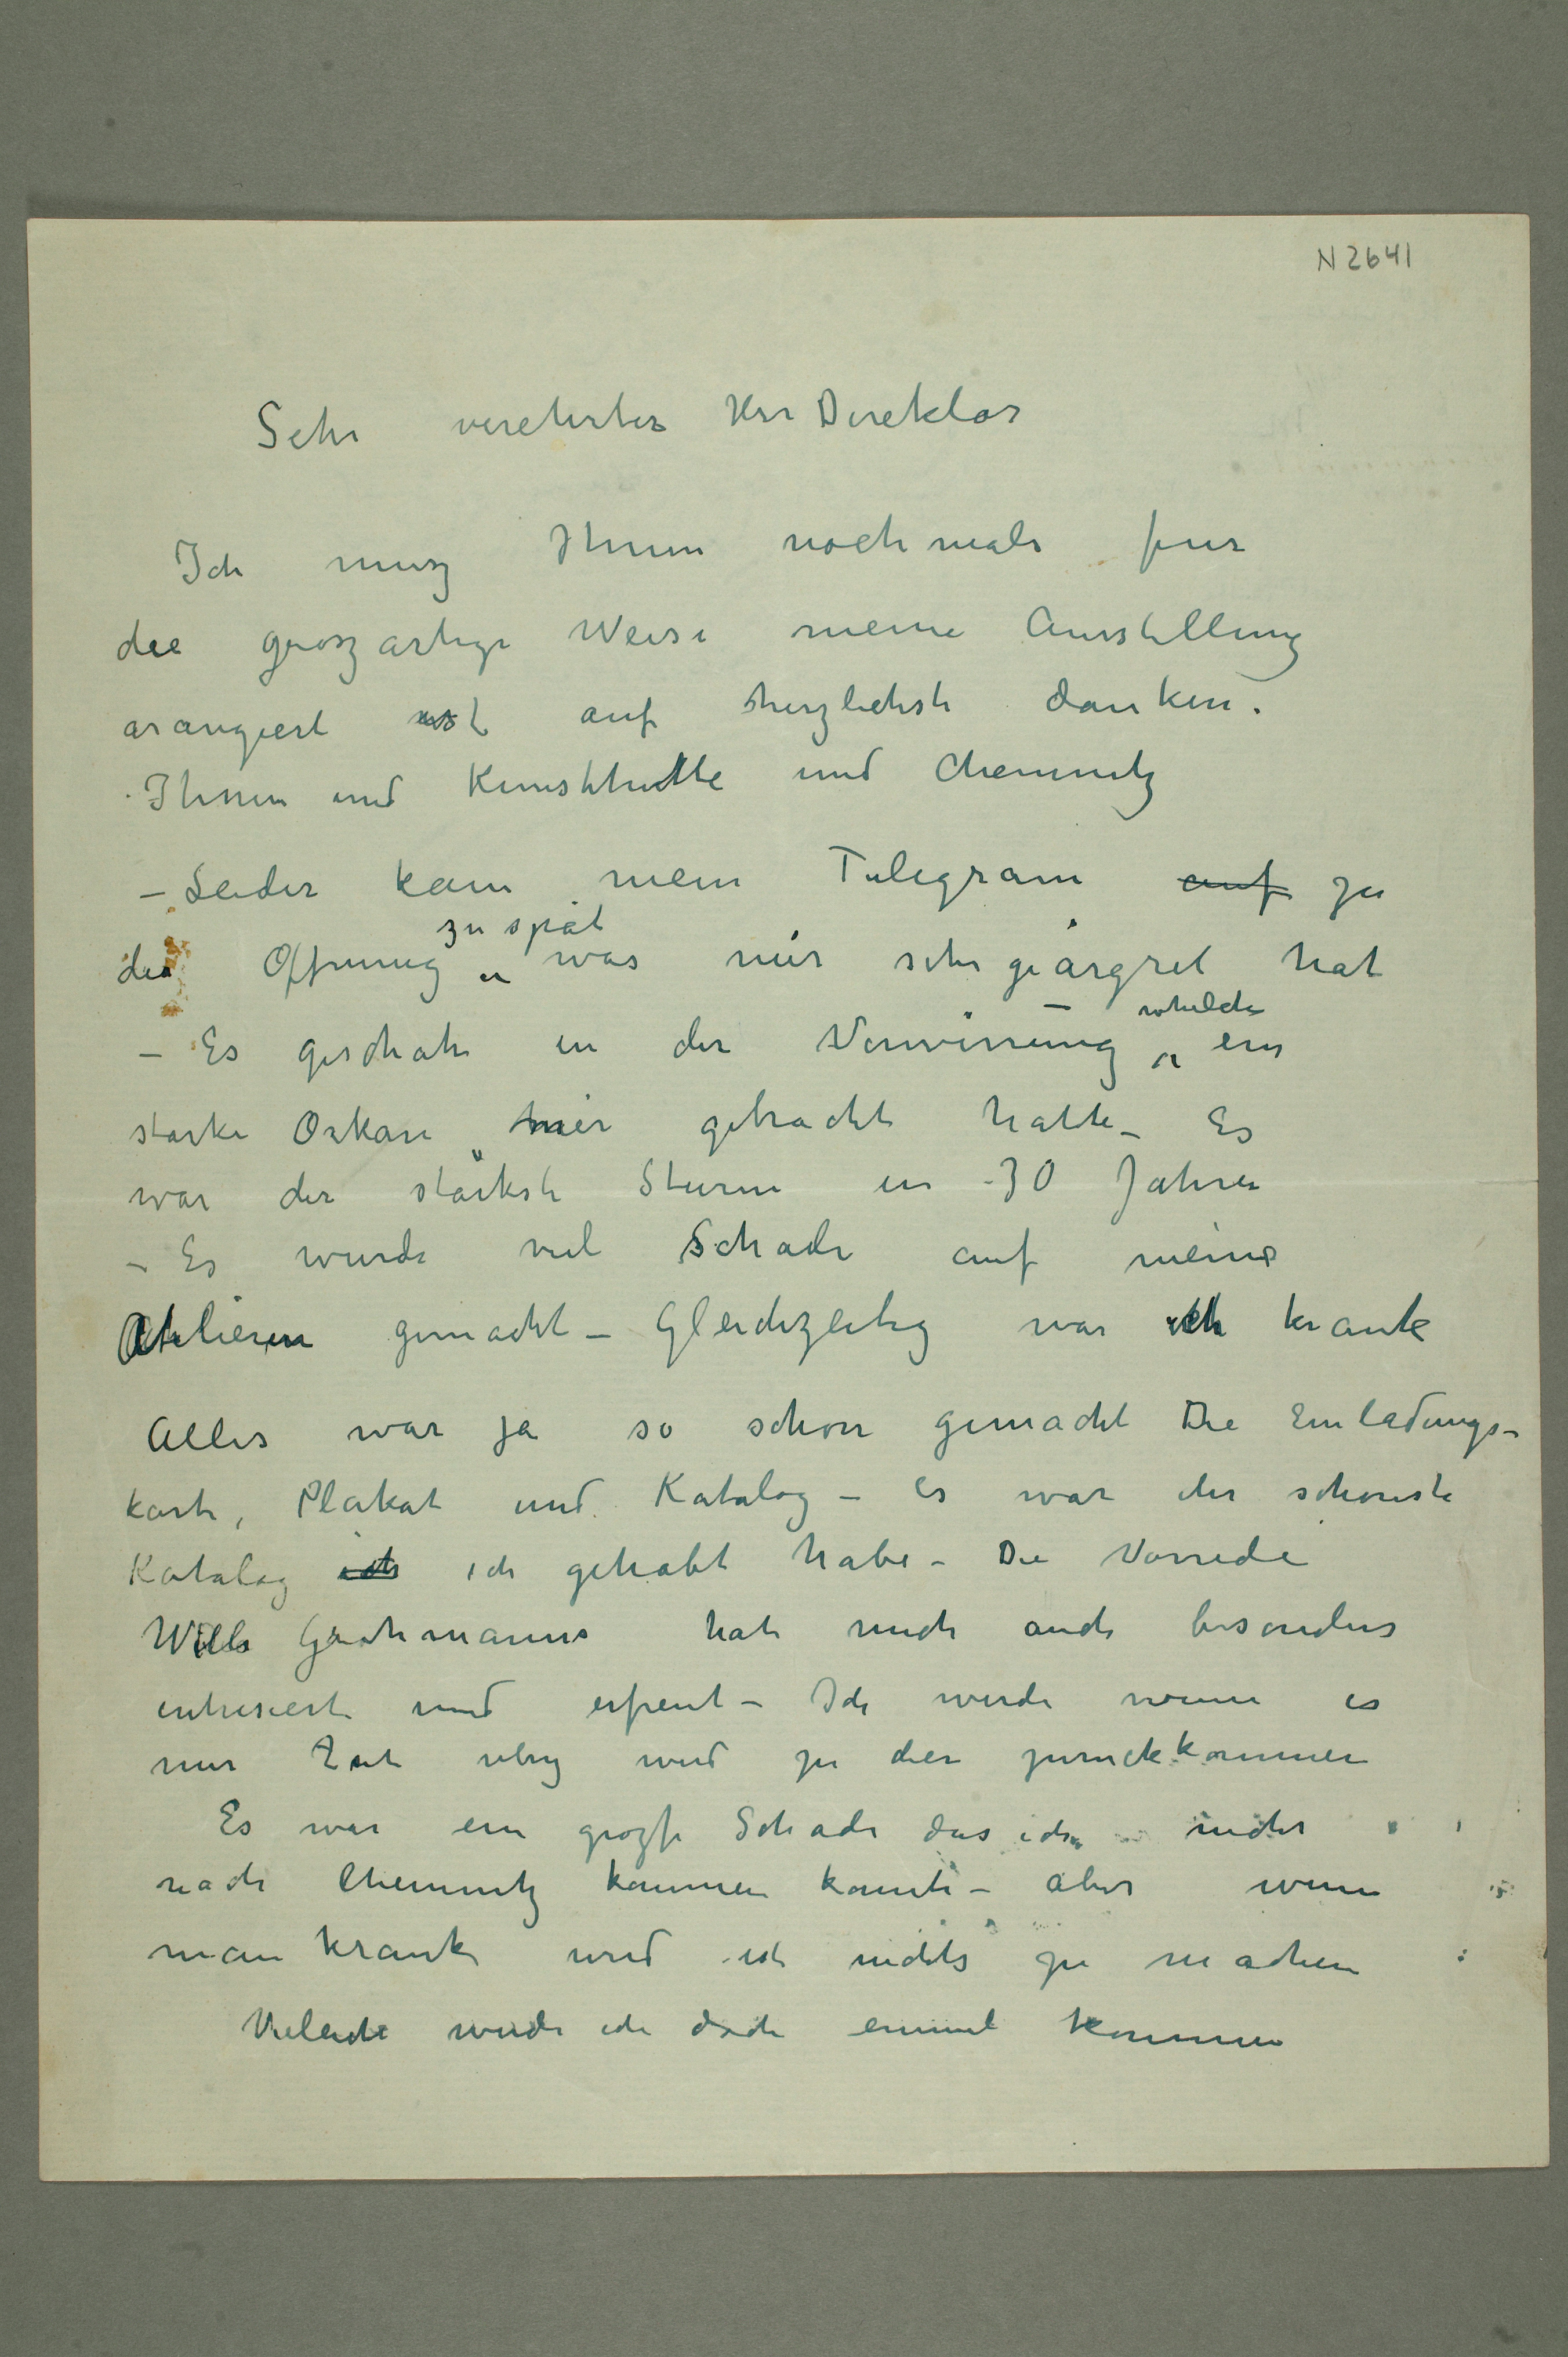 N 2641
Sehr verehrter Herr Direktor
Ich musz Ihnen nochmals fur
die groszartige Weise meine Ausstellung
arangiert ist auf herzlichste danken.
Ihnen und Kunsthutte und Chemnitz
– Leider kam mein Telegram auf zu
zu spät
der Offnung was mir sehr geärgret hat
– Es geschah in der Verwirrung welche ein
starke Orkan hier gebracht hatte – Es
war der stärkste Sturm in 30 Jahren
– Es wurde viel Schade auf meine
Atelieren gemacht – Gleichzeitig war ich krank
Alles war ja so schon gemacht Die Einladungs-
karte, Plakat und Katalog – es war der schonste
Katalog ich ich gehabt habe – Die Vorrede
Wills Grohmanns hat mich auch besonders
intresiert und erfreut – Ich werde wenn es
mir Zeit ubrig wird zu den zuruckkommen
Es war ein grosze Schade das ich nicht
nach Chemnitz kommen konnte – aber wenn
man krank wird ist nichts zu machen
Vieleicht werde ich doch einmal kommen